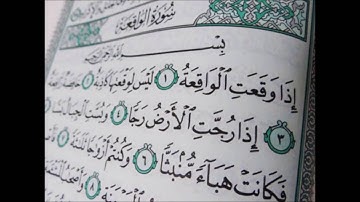 سُورَةُ الوَاقِعَةِ
بِسۡمِ ٱللَّهِ ٱلرَّحۡمَٰنِ ٱلرَّحِيمِ
إِذَا وَقَعَتِ ٱلۡوَاقِعَةُ ١ لَيۡسَ لِوَقۡعَتِهَا كَاذِبَةٌ ٢ خَافِضَةٞ
٣ إِذَا رُجَّتِ ٱلۡأَرۡضُ رَجّٗا ٤ وَبُسَّتِ ٱلۡجِبَالُ
فَكَانَتۡ هَبَآءٗ مُّنۢبَثّٗا ٦ وَكُنتُمۡ أَزۡوَٰجٗا ثَلَٰثَةٗ ٧
٨